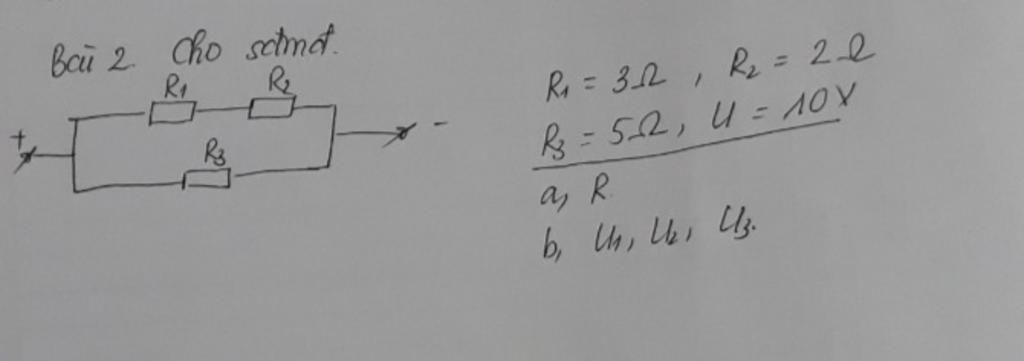 Bài 2. Cho sơđmđ.
R1 R2
+ -
R3
R1 = 3Ω, R2 = 2Ω
R3 = 5Ω, U = 10V
a, R
b, U1, U2, U3.